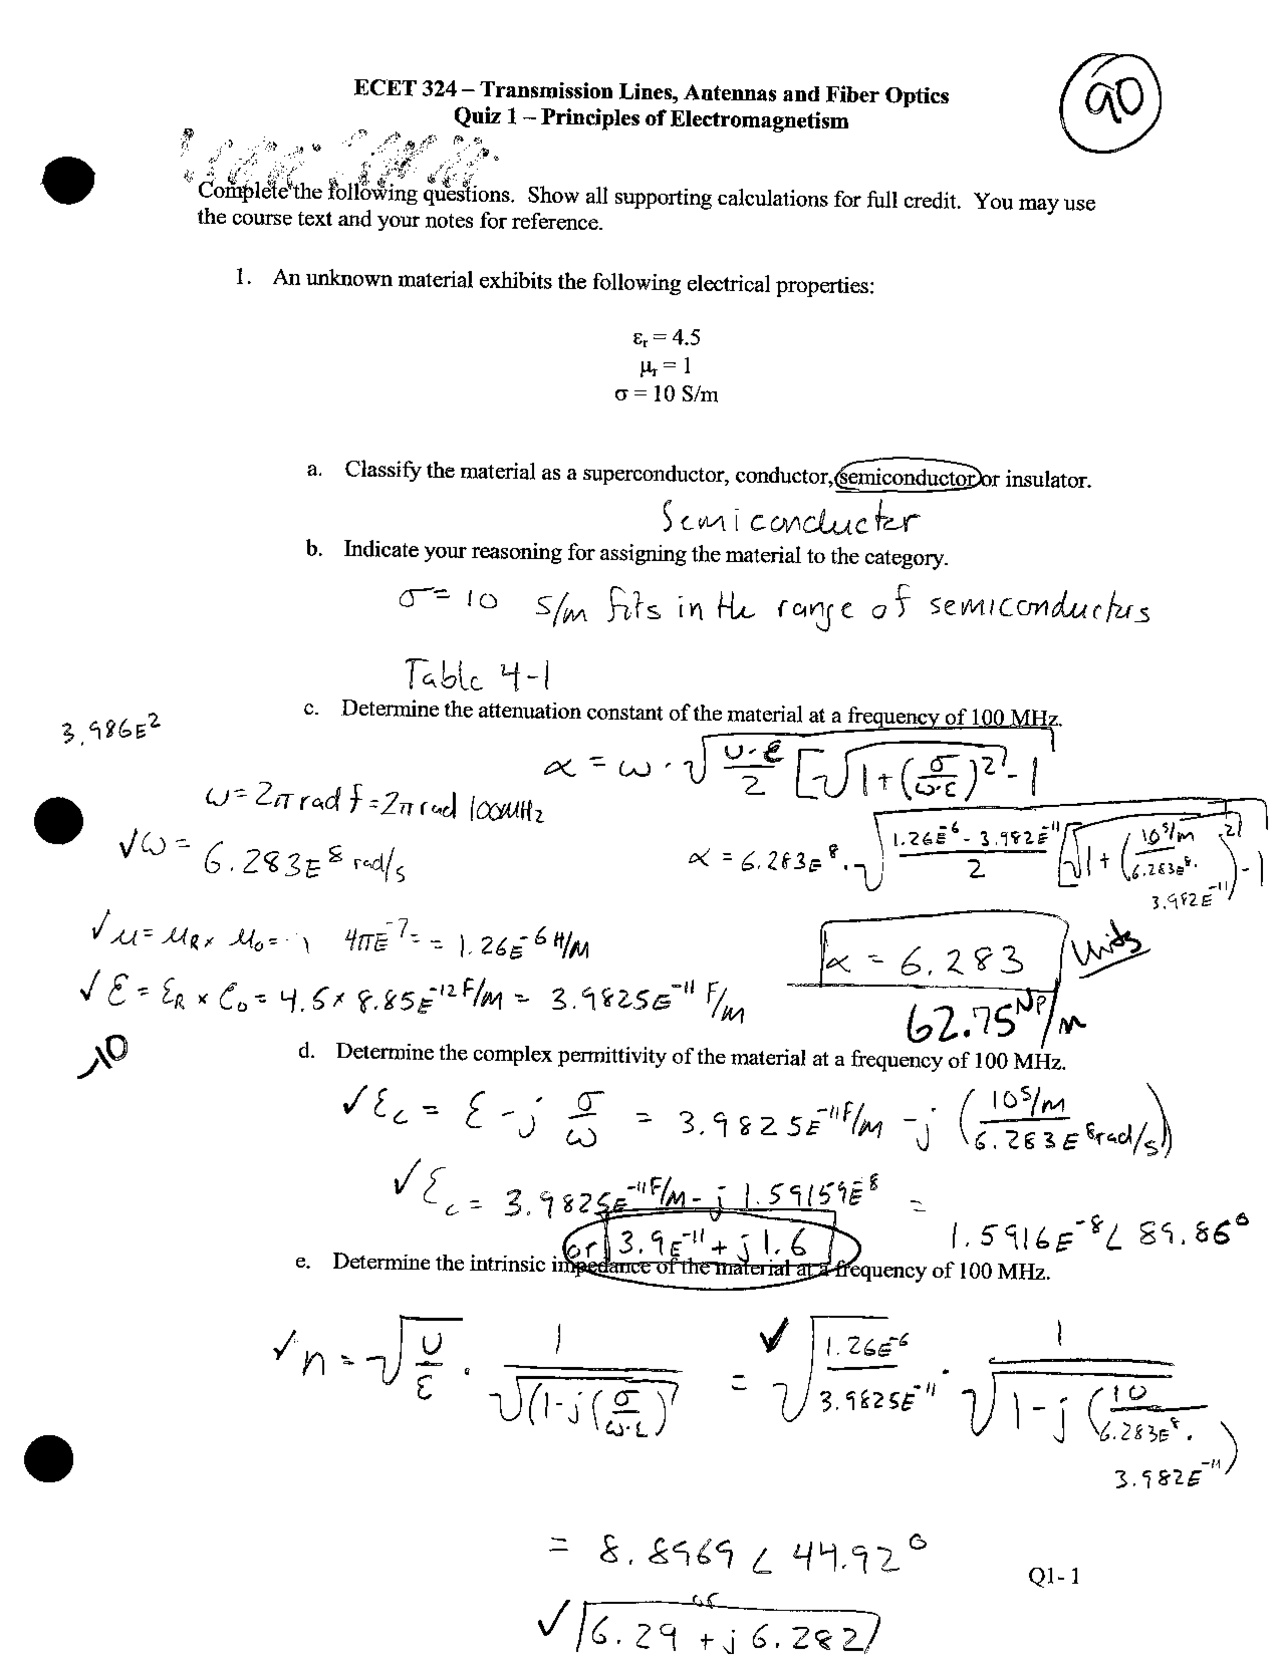 ECET 324 – Transmission Lines, Antennas and Fiber Optics
Quiz 1 – Principles of Electromagnetism
90
Complete the following questions. Show all supporting calculations for full credit. You may use
the course text and your notes for reference.
1. An unknown material exhibits the following electrical properties:
εr = 4.5
μr = 1
σ = 10 S/m
a. Classify the material as a superconductor, conductor, semiconductor or insulator.
Semiconductor
b. Indicate your reasoning for assigning the material to the category.
σ = 10 S/m fits in the range of semiconductors
Table 4-1
c. Determine the attenuation constant of the material at a frequency of 100 MHz.
3.986E²
α = ω · √(U·ε/2 [√(1+(σ/ω·ε)²) - 1
ω = 2π rad f = 2π rad 100MHz
√ω = 6.283E⁸ rad/s
α = 6.283E⁸ · √(1.26E⁻⁶ - 3.982E⁻¹¹/2 [√(1 + (10 S/m / 6.283E⁸ · 3.982E⁻¹¹)²) - 1
√ μ = μR × μ0 = 4πE⁻⁷ = = 1.26E⁻⁶ H/M
α = 6.283
Units
√ ε = εR × ε0 = 4.5 × 8.85E⁻¹² F/M = 3.9825E⁻¹¹ F/M
62.75 Np/m
-10
d. Determine the complex permittivity of the material at a frequency of 100 MHz.
√ εc = ε - j σ/ω = 3.9825E⁻¹¹ F/M - j (10 S/m / 6.283E⁸ rad/s)
√ εc = 3.9825E⁻¹¹ F/M - j 1.59159E⁻⁸ = 1.5916E⁻⁸ ∠ 89.86°
or 3.9E⁻¹¹ + j 1.6
e. Determine the intrinsic impedance of the material at a frequency of 100 MHz.
√ n = √(U/ε) · 1/√(1-j(σ/ω·ε)) = √ √(1.26E⁻⁶/3.9825E⁻¹¹) · 1/√(1 - j(10/6.283E⁸ · 3.982E⁻¹¹))
= 8.8969 ∠ 44.92°
Q1- 1
or
√ 6.29 + j 6.282